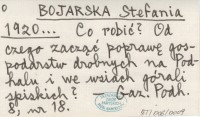 BOJARSKA Stefania
1920... Co robić? Od
czego zacząć poprawę gos-
podarstw drobnych na Pod-
halu i we wsiach górali
spiskich? — Gaz. Podh.
8, nr 18.